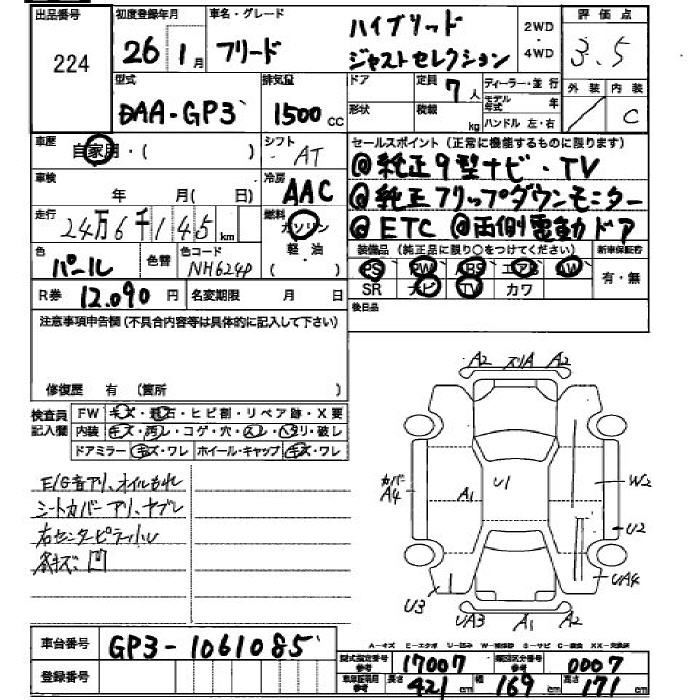 出品番号 初度登録年月 車名・グレード 2WD・4WD 評価点
224 26 1月 フリード ハイブリッド ジャストセレクション 3.5
型式 排気量 ドア 定員 7人 ディーラー・並行 外装 内装
DAA-GP3 1500cc 形状 積載 kg モデル年式 年 C
ハンドル 左・右
車歴 自家用・( ) シフト AT セールスポイント(正常に機能するものに限ります)
@純正9型ナビ・TV
車検 年 月( 日) 冷房 AAC @純正フリップダウンモニター
走行 24万6千145km 燃料 ガソリン 軽・油 @ETC @両側電動ドア
色 パール 色替 色コード NH624P 装備品(純正品に限り○をつけてください) 新車保証書
( ) PS PW ABS エアB AW 有・無
R券 12.090円 名変期限 月 日 SR ナビ TV カワ
注意事項申告欄(不具合内容等は具体的に記入して下さい) 後日品
修復歴 有 (箇所 )
A2 スリA A2
検査員記入欄 FW キズ・飛石・ヒビ割・リペア跡・X要
内装 キズ・汚レ・コゲ・穴・スレ・ヘタリ・破レ
ドアミラー キズ・ワレ ホイール・キャップ キズ・ワレ
カバーA4 A1 U1 W2
E/G音アリ、オイルもれ
シートカバーアリ、ナブレ
右センターピラー小レ U2
キズ凹
U3 UA3 A1 A2 UA4
車台番号 GP3-1061085
A-キズ E-エクボ U-凹み W-補修跡 S-サビ C-腐食 XX-交換済
型式指定番号参考 17007 類別区分番号参考 0007
登録番号 車庫証明用参考 長さ 421cm 幅 169cm 高さ 171cm